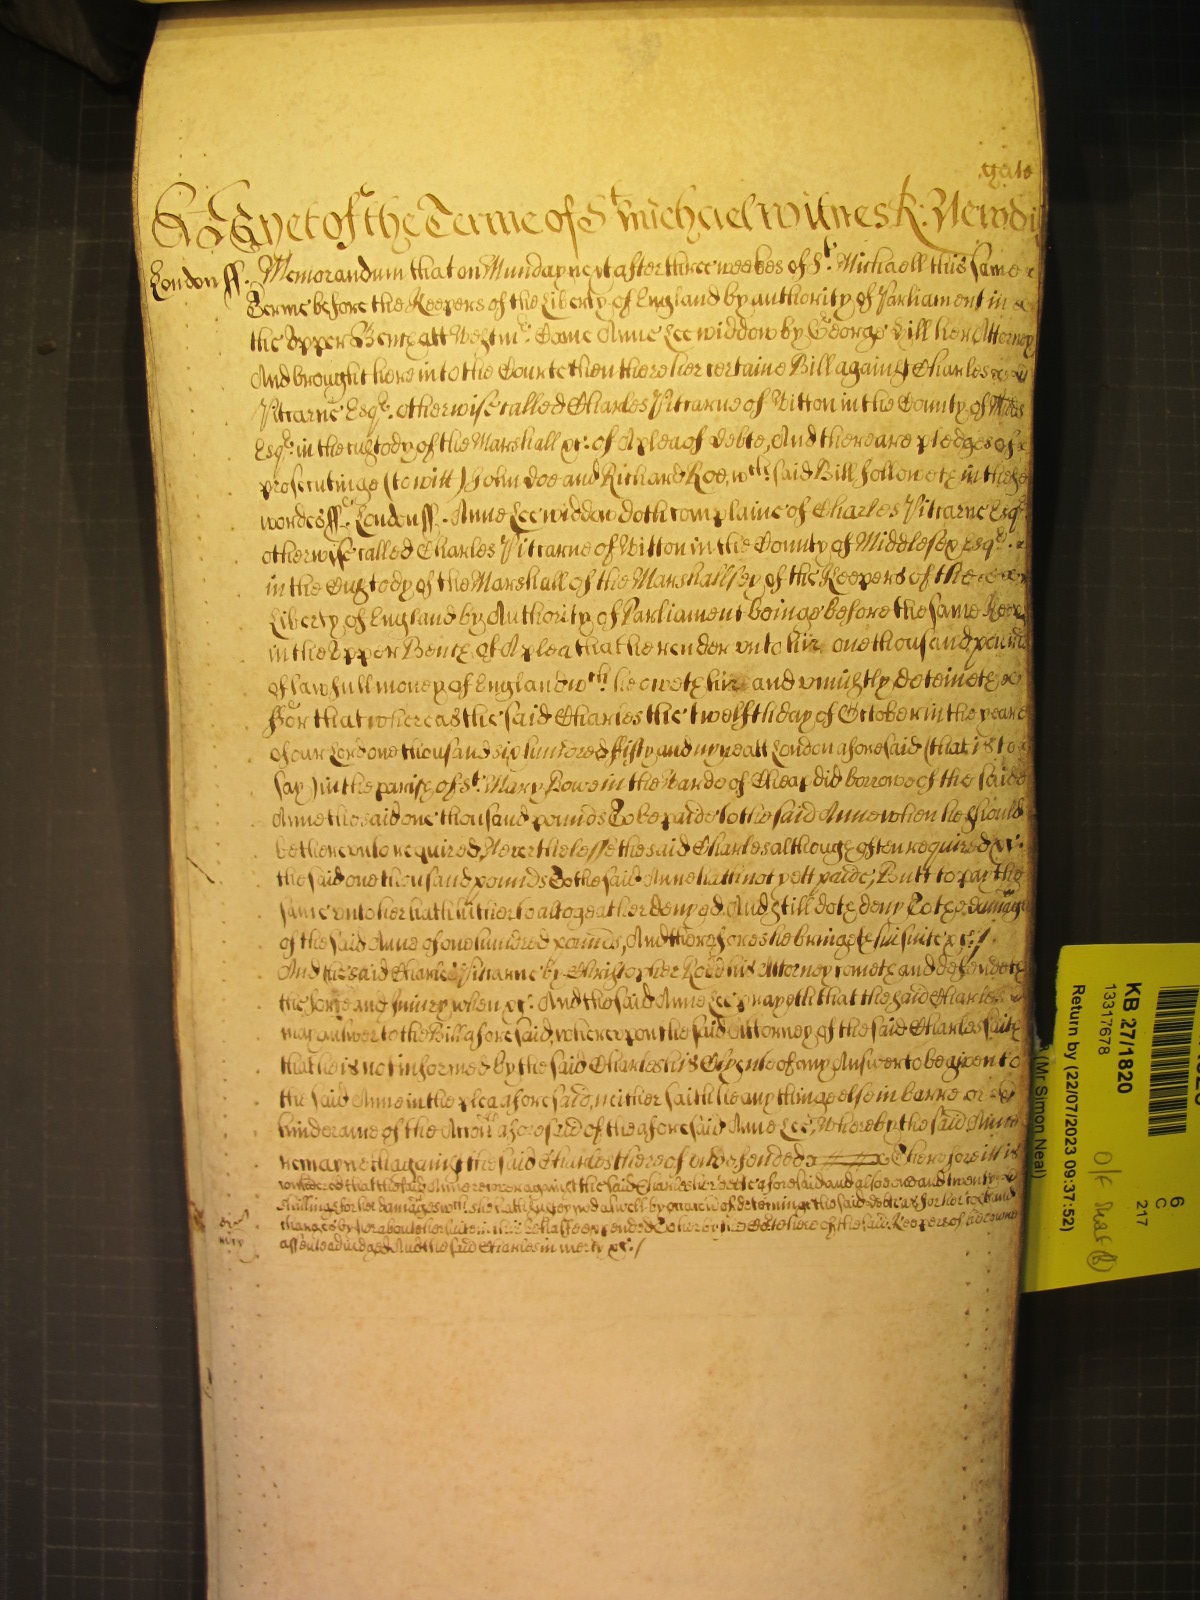 gate
As yet of the Terme of St Michael witnes R: Newdi
London ss. Memorandum that on Munday next after three weekes of St. Michaell this same
Terme before the Keepers of the Liberty of England by authority of Parliament in
the Upper Bench att Westmr. Came Anne Lee widdow by George Lill her Attorney
And brought here into the Courte then there her certaine Bill against Charles
Pitcarne Esqr. otherwise called Charles Pitcarne of Witton in the County of Midds
Esqr. in the custody of the Marshall &c. of A plea of debte, And there are pledges of
prosecutinge (to witt) John Doe and Richard Roe, wch. said Bill followeth in these
wordes ss. London ss. Anne Lee widdow doth complaine of Charles Pitcarne Esqr.
otherwise called Charles Pitcarne of Witton in the County of Middlesex Esqr.
in the Custody of the Marshall of the Marshallsey of the Keepers of the
Liberty of England by Authority of Parliament beinge before the same Keep
in the Upper Bench, of A plea that he render unto hir one thousand pound
of lawfull money of England wch. he oweth hir and uniustly deteineth
For that whereas the said Charles the twelfth day of October in the yeare
of our Lord one thousand six hundred fifty and nyne att London aforesaid (that is to
say) in the parish of St. Mary Bowe in the Warde of Cheap did borrowe of the saide
Anne the said one thousand pounds To be paide to the said Anne when he should
be thereunto required, Neverthelesse the said Charles although often required &c.
the said one thousand pounds To the said Anne hath not yett paide, Butt to pay the
same unto her hath hitherto altogeather denyed, And still doth deny To the damage
of the said Anne of one hundred pounds, And therefore she bringeth hir suite &c./
And the said Charles Pitcarne by Christopher Rodd his Attorney cometh and defendeth
the force and Iniury when &c. And the said Anne Lee prayeth that the said Charles
may answer to the Bill aforesaid, whereupon the said Attorney of the said Charles saith
that he is not informed by the said Charles his Clyente of any Answer to be given to
the said Anne in the plea aforesaid, neither saith he any thinge else in barre or
hinderance of the Accion aforesaid of the aforesaid Anne Lee, Whereby the said Anne
remayneth against the said Charles thereof undefended Therefore itt is
considered that the said Anne recover against the said Charles her debte aforesaid and alsoe one and twenty
shillings for her damages wch. she hath susteyned aswell by occacion of deteininge the said debte as for her costs and
charges by her about her suite in this behalfe expended To her by the Courte here of the said Keepers of her owne
assente adiudged And the said Charles in mercy &c./
mercy
KB 27/1820
13317678
Return by (22/07/2023 09:37:52)
(Mr Simon Neal)
6
C
217